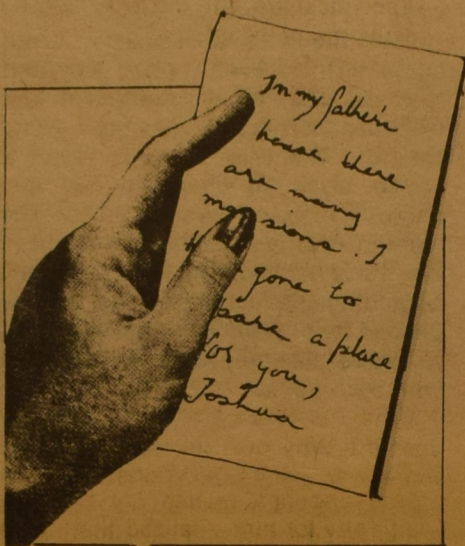 In my father's
house there
are many
mansions. I
gone to
pare a place
for you,
Joshua